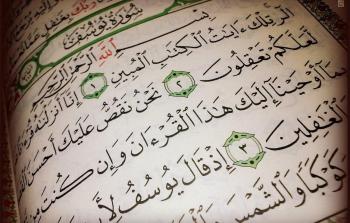 رَبُّكَ بِغَٰفِلٍ عَمَّا
سُورَةُ يُوسُفَ
بِسْمِ ٱللَّهِ ٱلرَّحْمَٰنِ ٱلرَّحِيمِ
الٓر تِلْكَ ءَايَٰتُ ٱلْكِتَٰبِ ٱلْمُبِينِ ١ إِنَّآ أَنزَلْنَٰهُ
لَّعَلَّكُمْ تَعْقِلُونَ ٢ نَحْنُ نَقُصُّ عَلَيْكَ أَحْسَنَ
بِمَآ أَوْحَيْنَآ إِلَيْكَ هَٰذَا ٱلْقُرْءَانَ وَإِن كُنتَ
ٱلْغَٰفِلِينَ ٣ إِذْ قَالَ يُوسُفُ
كَوْكَبًا وَٱلشَّمْسَ